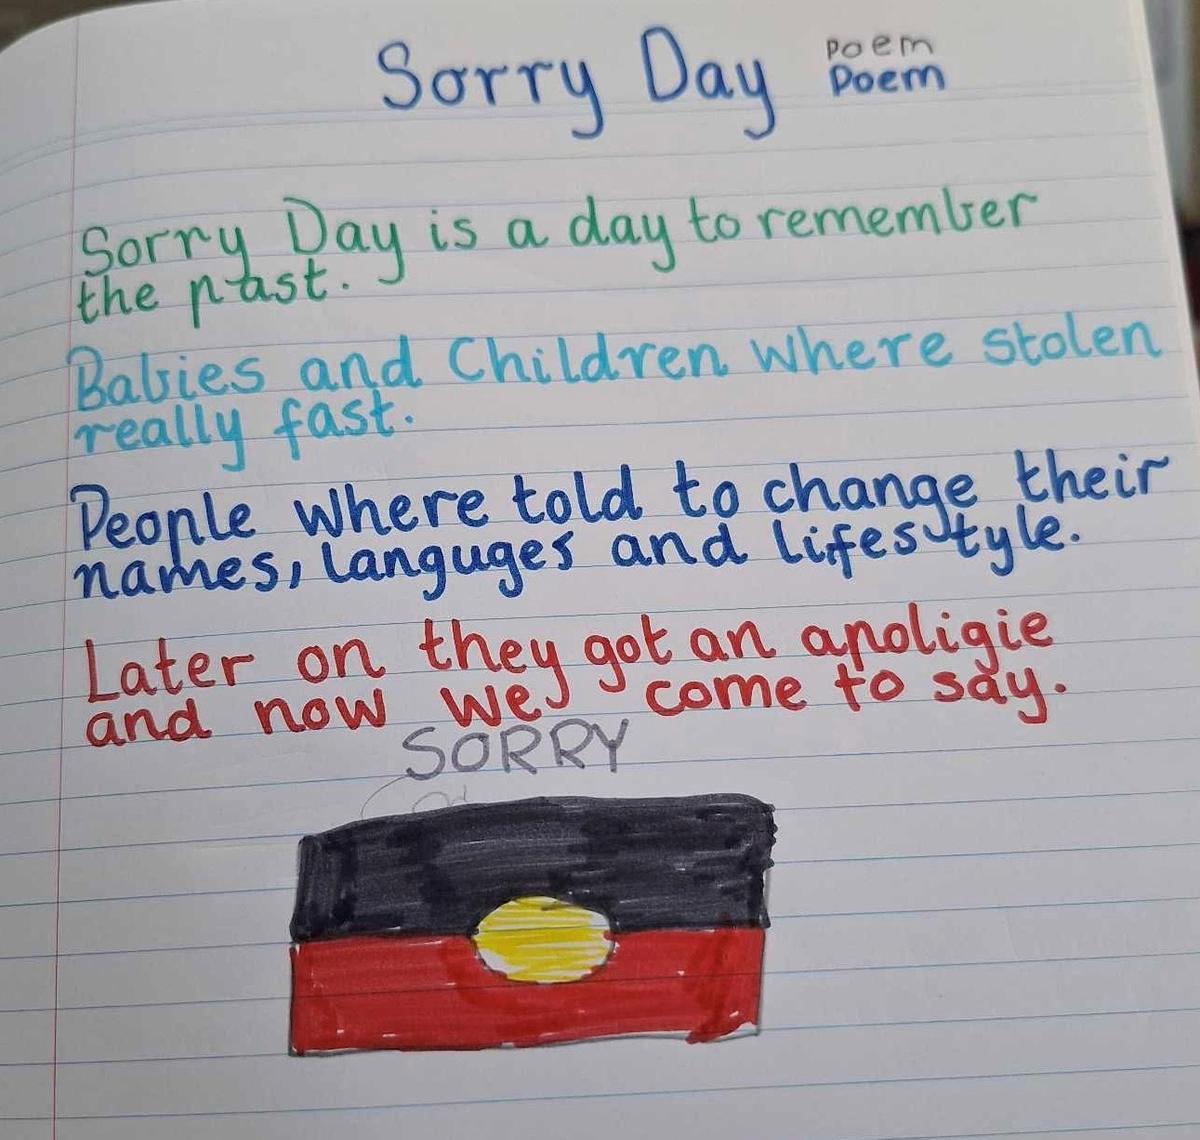 Sorry Day poem
Poem
Sorry Day is a day to remember
the past.
Babies and Children where stolen
really fast.
People where told to change their
names, languges and lifestyle.
Later on they got an apoligie
and now we come to say.
SORRY